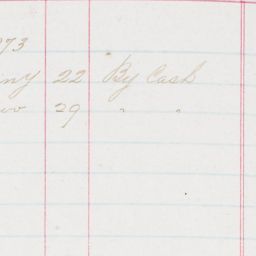 73
22 By Cash
29 " "